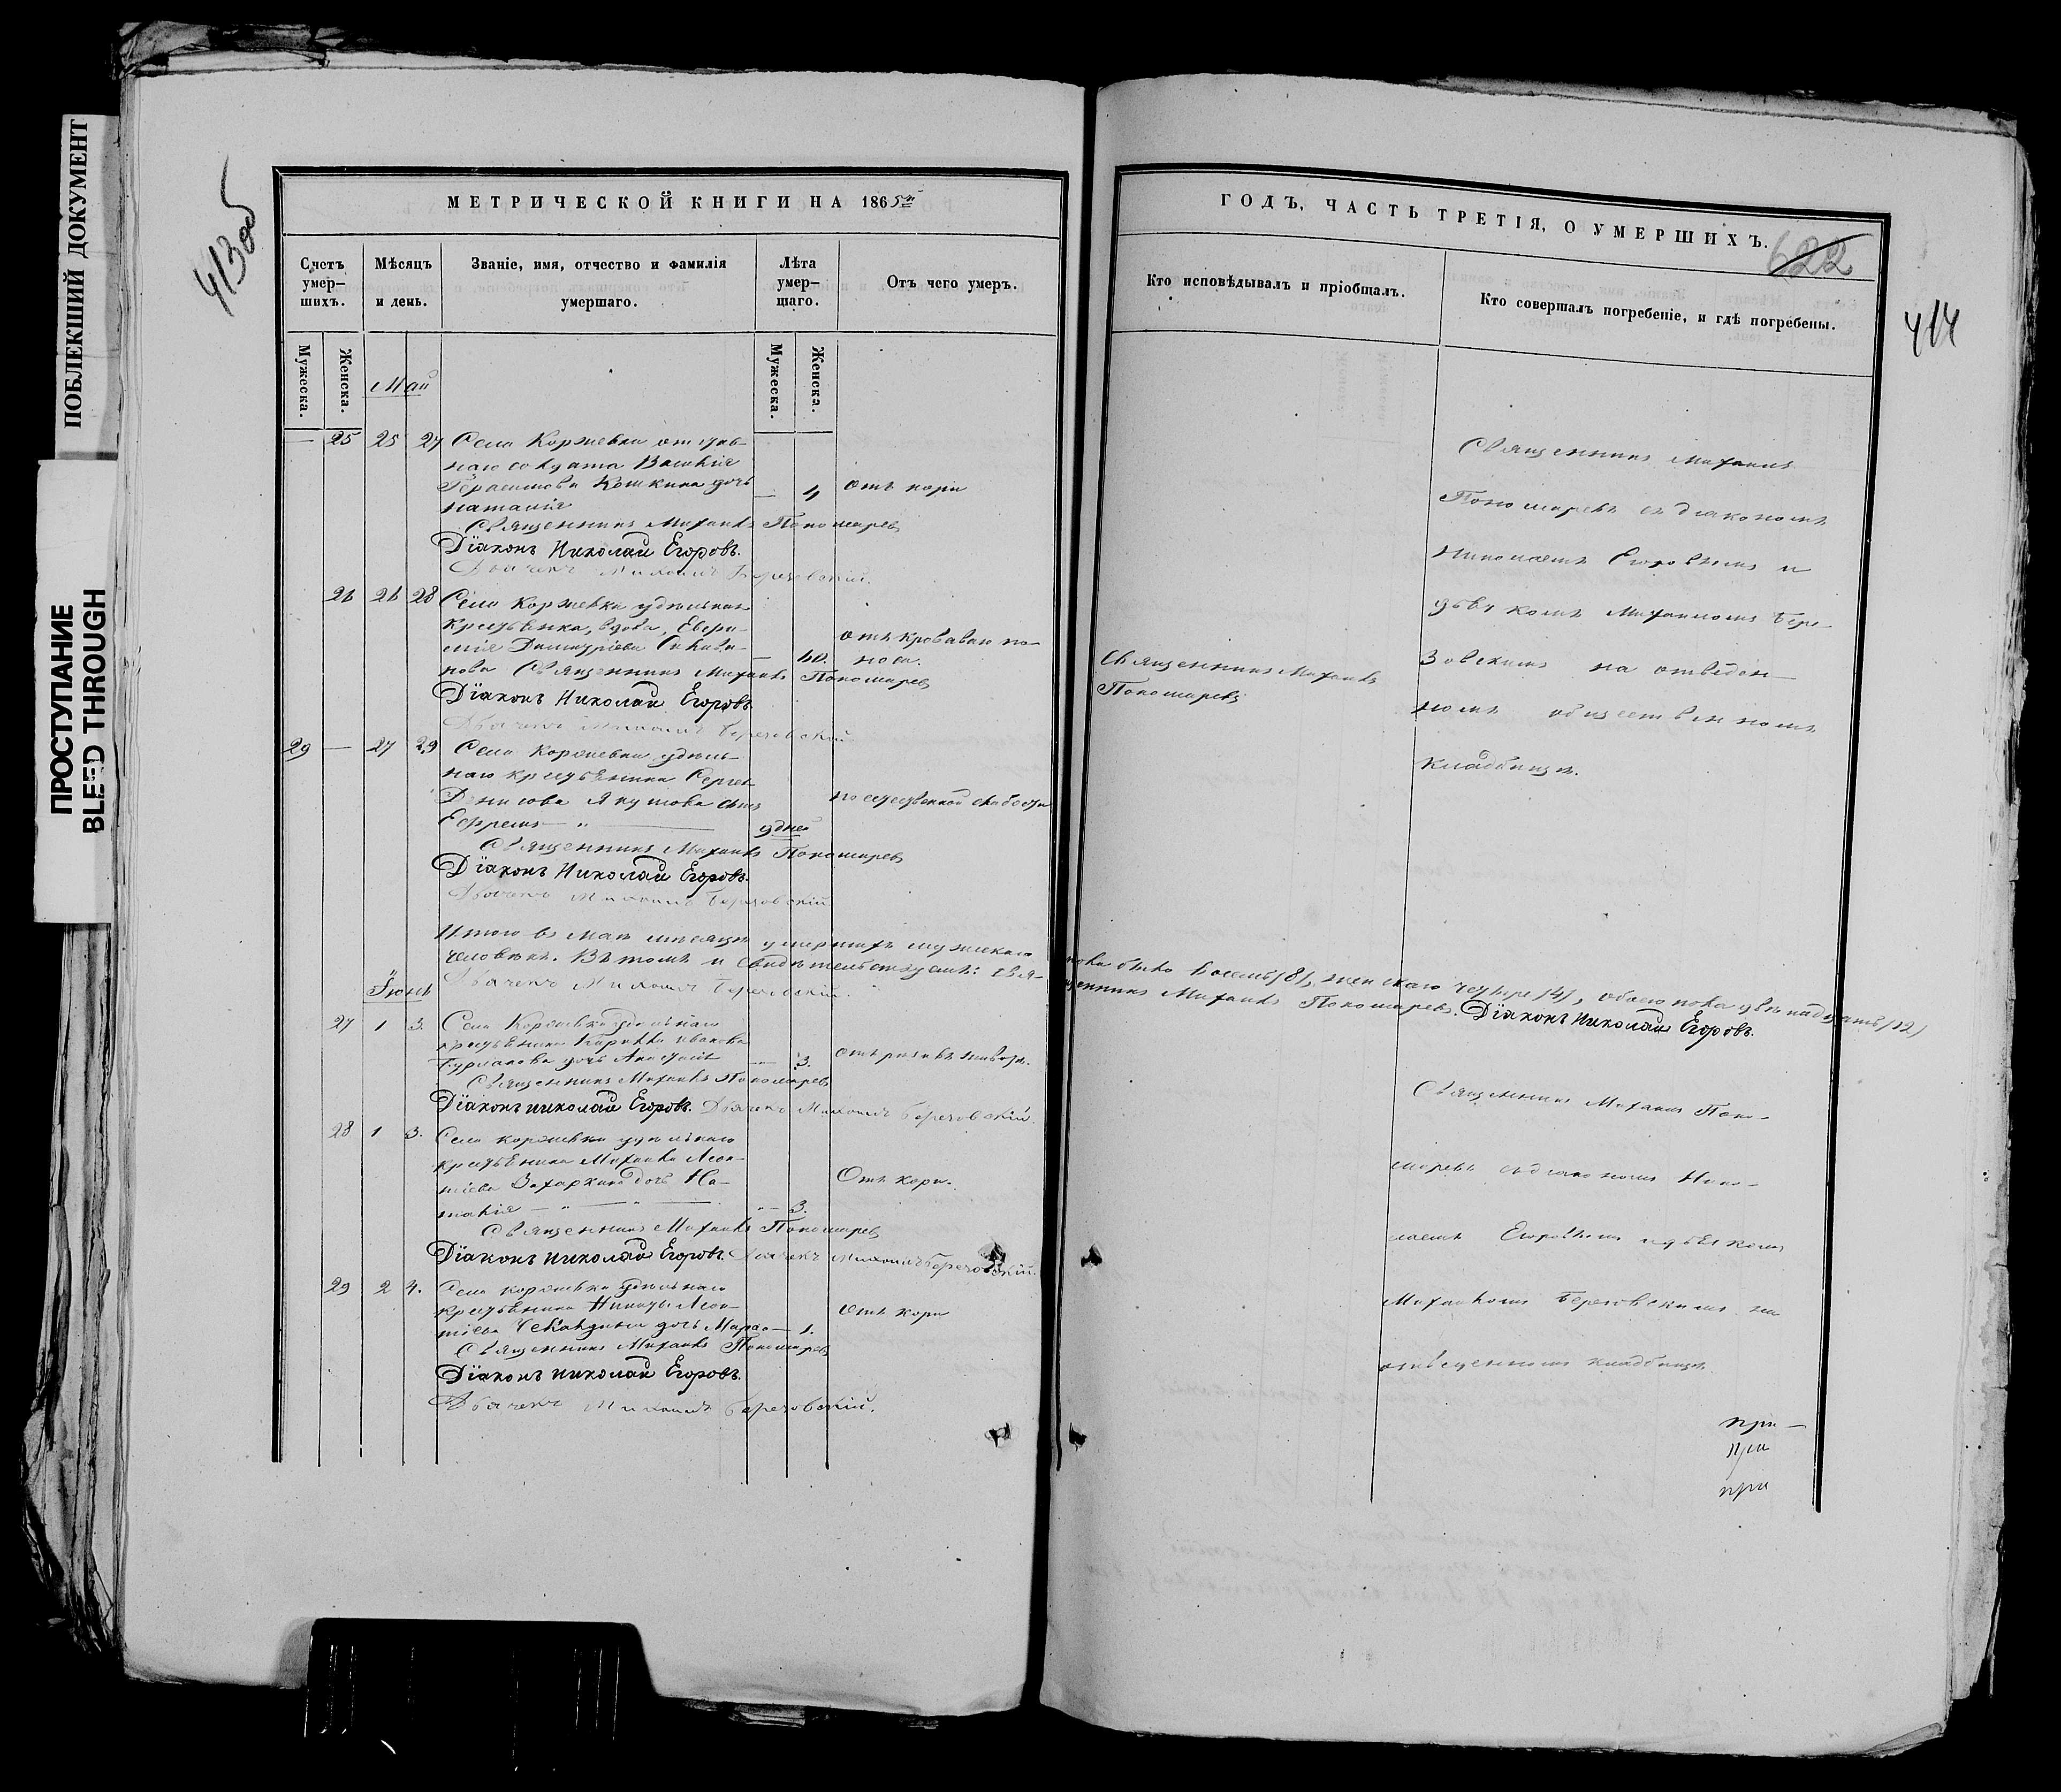 ПОБЛЕКШИЙ ДОКУМЕНТ
ПРОСТУПАНИЕ
BLEED THROUGH
413об
МЕТРИЧЕСКОЙ КНИГИ НА 1865й
Счетъ умер-шихъ.
Мѣсяцъ и день.
Званіе, имя, отчество и фамилія умершаго.
Лѣта умер-шаго.
Отъ чего умеръ.
Мужеска.
Женска.
Мужеска.
Женска.
Май
— 25 25 27 Села Коржевки отстав-
наго солдата Василія
Герасимова Кошкина дочь
Наталія — 4 Отъ кори
Священникъ Михаилъ Пономаревъ
Діаконъ Николай Егоровъ.
Дьячекъ Михаилъ Березовскій.
26 26 28 Села Коржевки удѣльная
крестьянка, вдова, Евфи-
мія Димитріева
60. отъ кроваваго по-
носа.
Священникъ Михаилъ Пономаревъ
Діаконъ Николай Егоровъ.
Дьячекъ Михаилъ Березовскій
29 — 27 29 Села Коржевки удѣль-
наго крестьянина Сергея
Денисова Якутова сынъ
Ефремъ — " — 9 дней
по естественной слабости
Священникъ Михаилъ Пономаревъ
Діаконъ Николай Егоровъ.
Дьячекъ Михаилъ Березовскій
Итого въ маѣ мѣсяцѣ умершихъ мужескаго пола было восемь (8), женскаго четыре (4), обоего пола двѣнадцать (12)
человѣкъ. Въ томъ и свидѣтельствуемъ: Священникъ Михаилъ Пономаревъ. Діаконъ Николай Егоровъ.
Дьячекъ Михаилъ Березовскій.
Іюнь
27 1 3. Села Коржевки удѣльнаго
крестьянина Кирилла Иванова
дочь Анастасія — 3.
Священникъ Михаилъ Пономаревъ
Діаконъ Николай Егоровъ. Дьячекъ Михаилъ Березовскій
28 1 3. Села Коржевки удѣльнаго
крестьянина Михаила Леон-
тіева Захаркина дочь На-
талія — " — " — 3. Отъ кори.
Священникъ Михаилъ Пономаревъ
Діаконъ Николай Егоровъ. Дьячекъ Михаилъ Березовскій.
29 2 4. Села Коржевки удѣльнаго
крестьянина Никиты Леон-
тіева дочь Марѳа — 1. Отъ кори
Священникъ Михаилъ Пономаревъ
Діаконъ Николай Егоровъ.
Дьячекъ Михаилъ Березовскій.
ГОДЪ, ЧАСТЬ ТРЕТІЯ, О УМЕРШИХЪ.
622
414
Кто исповѣдывалъ и пріобщалъ.
Кто совершалъ погребеніе, и гдѣ погребены.
Священникъ Михаилъ
Пономаревъ
Священникъ Михаилъ
Пономаревъ съ діакономъ
Николаемъ Егоровымъ и
дьячкомъ Михаиломъ Бере-
зовскимъ на отведен-
номъ общественномъ
кладбищѣ.
Священникъ Михаилъ Поно-
маревъ съ діакономъ Нико-
лаемъ Егоровымъ и дьячкомъ
Михаиломъ Березовскимъ на
отведенномъ кладбищѣ.
при —
при
при